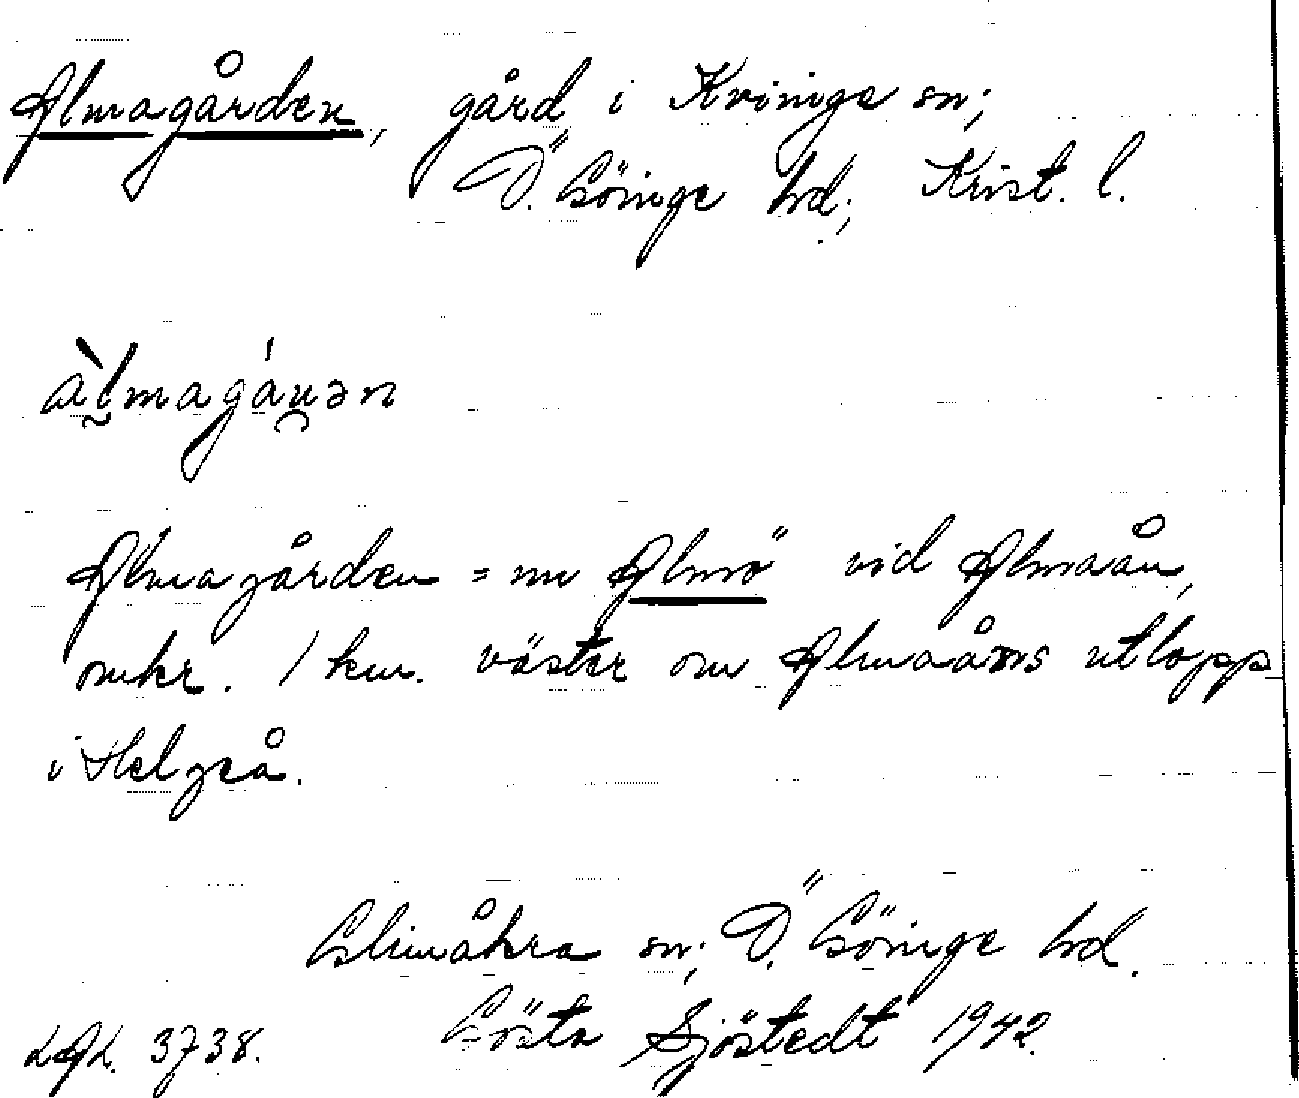 Almagården, gård i Kvinige sn;
Ö. Göinge hd; Krist. l.
àlmagáu̯ən
Almagården = nu Almö vid Almaån,
omkr. 1 km. väster om Almaåns utlopp
i Helgeå.
Glimåkra sn; Ö. Göinge hd.
Gösta Sjöstedt 1942.
LAL. 3738.